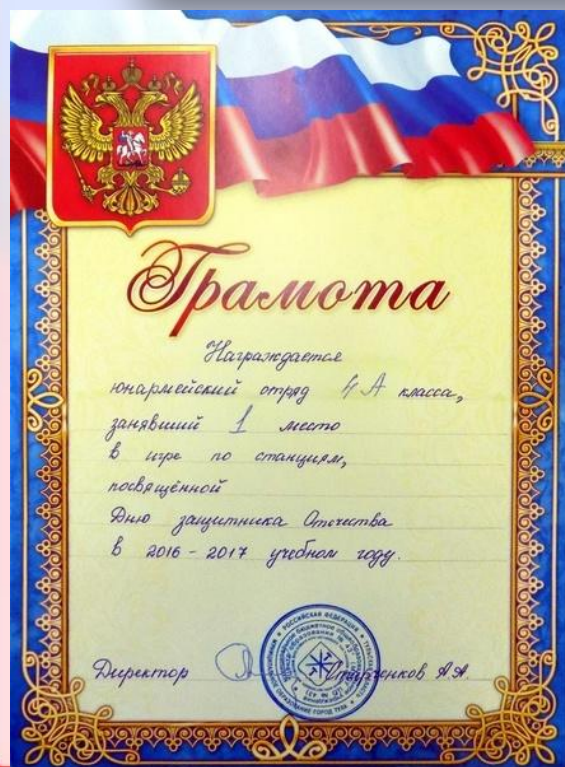 Грамота
Награждается
юнармейский отряд 4 А класса,
занявший 1 место
в игре по станциям,
посвящённой
Дню защитника Отечества
в 2016 - 2017 учебном году.
РОССИЙСКАЯ ФЕДЕРАЦИЯ
Директор А.А.